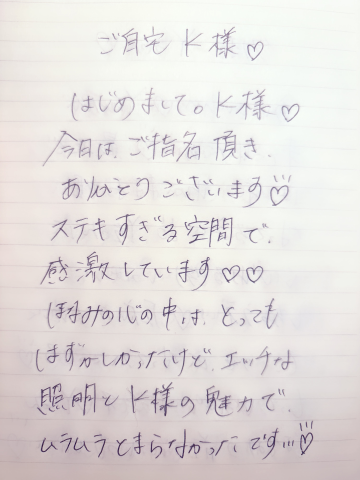 ご自宅 K様♡
はじめまして。K様♡
今日は、ご指名頂き、
ありがとうございます♡
ステキすぎる空間で、
感激しています♡♡
ほなみの心の中は、とっても
はずかしかったけど、エッチな
照明とK様の魅力で、
ムラムラとまらなかったです…♡